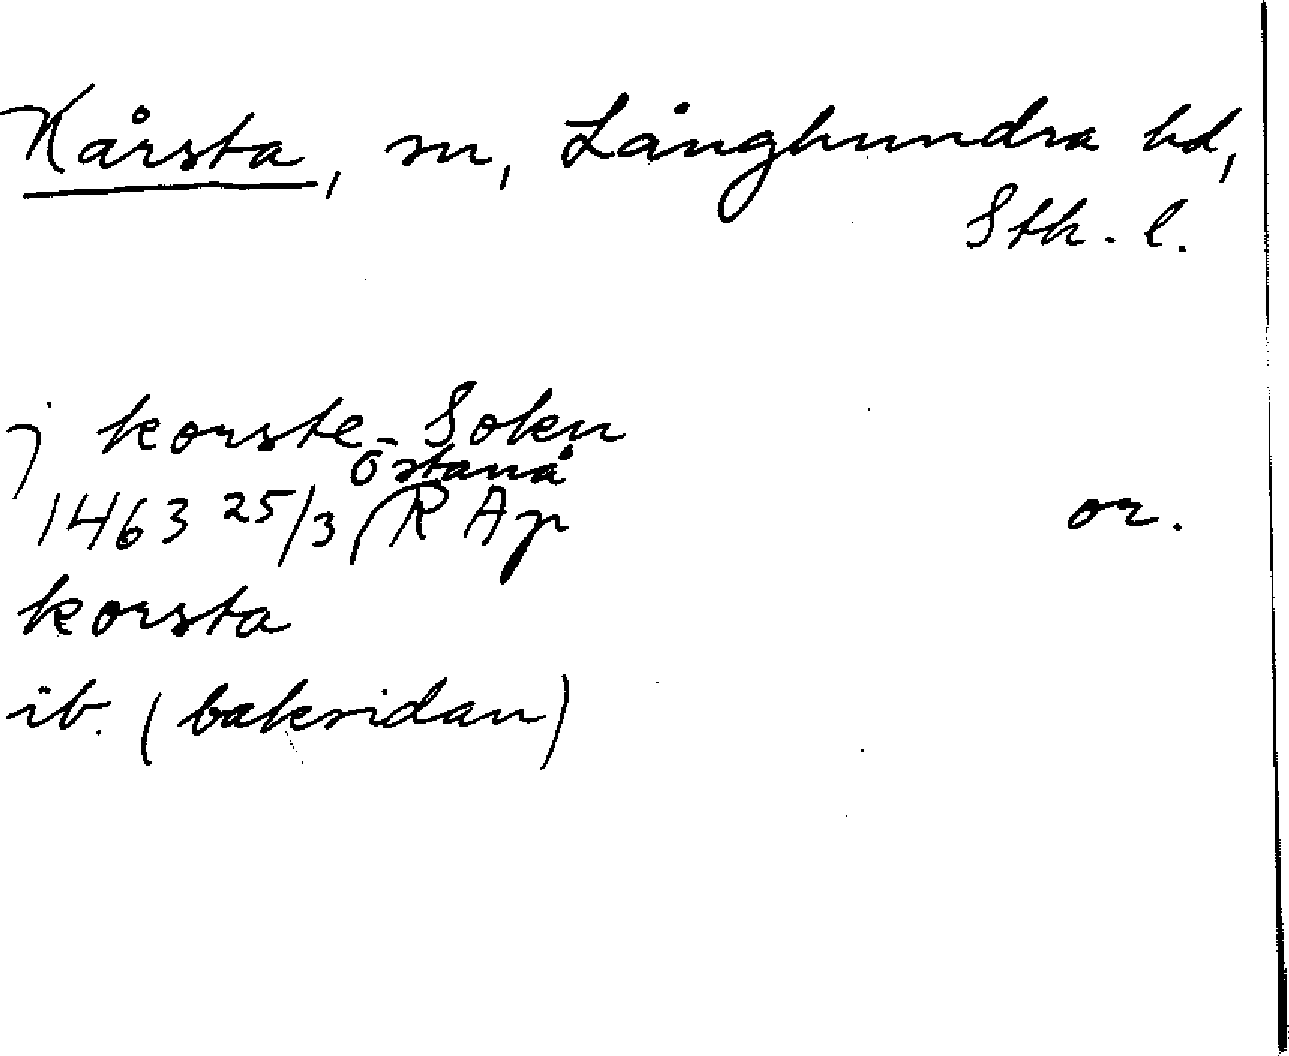 Kårsta, sn, Långhundra hd,
Sth. l.
j korste Sokn
Östanå
1463 25/3 RAp or.
korsta
ib. (baksidan)